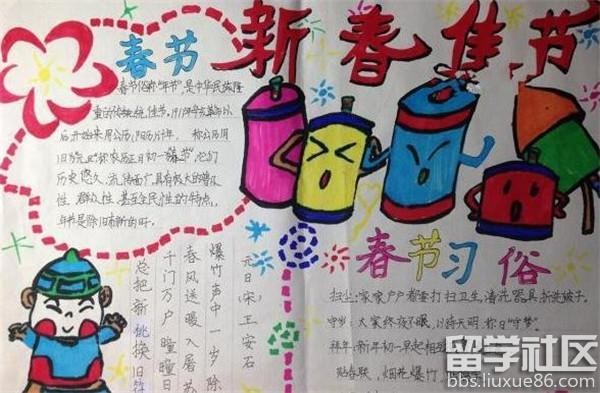 新春佳节
春节
春节俗称"年节",是中华民族隆
重的传统佳节。
后开始采用公历
旧历
历史悠久,流传面广,具有极大的普及
性、群众性、甚至全民性的特点。
年节是除旧布新的日
元日(宋)王安石
爆竹声中一岁除
春风送暖入屠苏
千门万户曈曈日
总把新桃换旧符
春节习俗
扫尘:家家户户都要打扫卫生,清洗器具,拆洗被子。
守岁:大家终夜不眠,以待天明,称曰"守岁"
拜年:新年初一早起相
贴春联,烟花爆竹,
留学社区
bbs.liuxue86.com